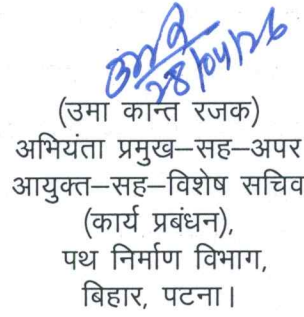 उमा
28/04/26
(उमा कान्त रजक)
अभियंता प्रमुख–सह–अपर
आयुक्त–सह–विशेष सचिव
(कार्य प्रबंधन),
पथ निर्माण विभाग,
बिहार, पटना।